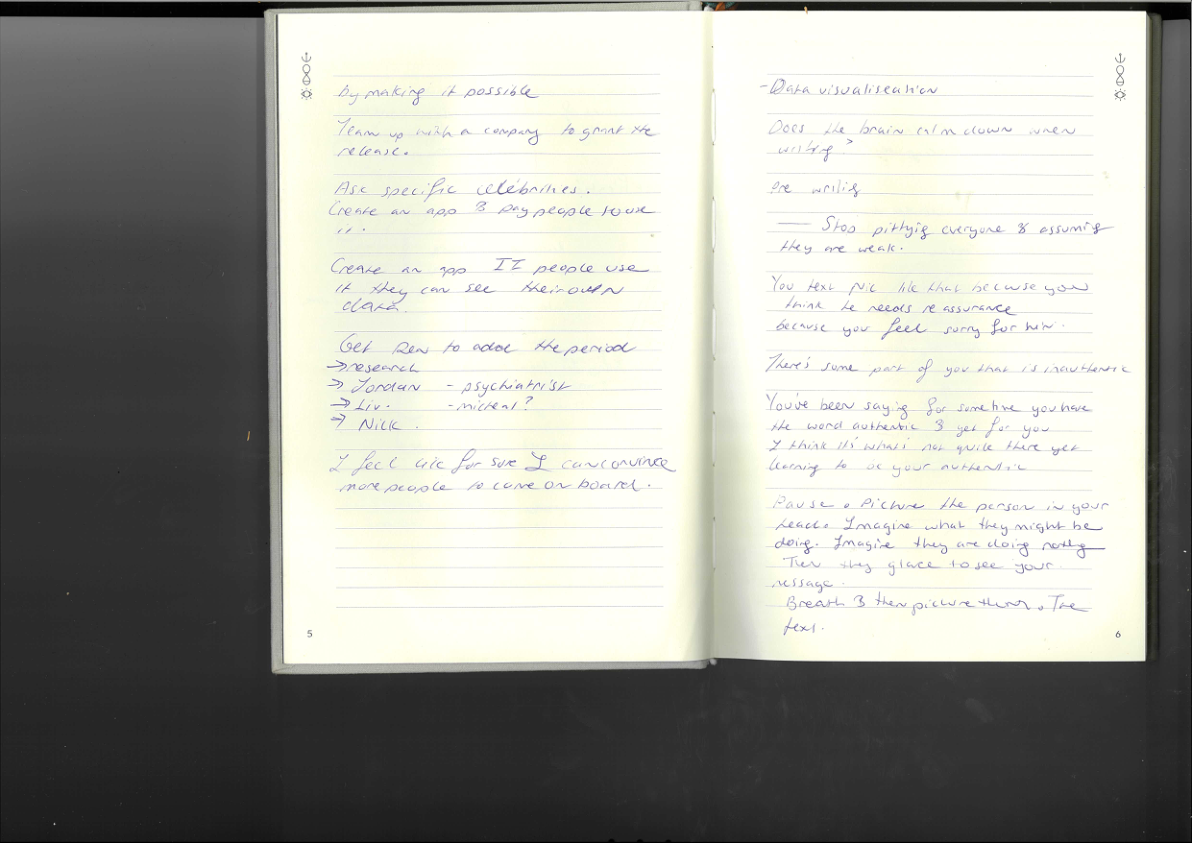 by making it possible
Team up with a company to grant the
release.
Ask specific celebrities.
Create an app & pay people to use
".
Create an app II people use
it they can see their own
data.
Get Ren to add the period
→ research
→ Jordan - psychiatrist
→ Liv. - micheal?
→ Nick.
I feel like for sure I can convince
more people to come on board.
5
- Data visualiseation
Does the brain calm down when
writing?
Pre writing
— Stop pittyig everyone & assuming
they are weak.
You text Nic like that because you
think he needs reassurance
because you feel sorry for him.
There's some part of you that is inauthentic
You've been saying for sometime you have
the word authentic & yet for you
I think it's what's not quite there yet
learning to be your authentic
Pause. Picture the person in your
head. Imagine what they might be
doing. Imagine they are doing nothing
Then they glace to see your
message.
Breath & then picture them. The
text.
6